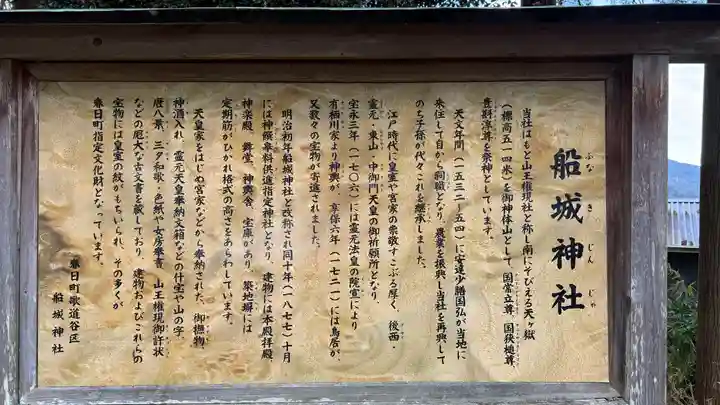 船城神社
ふなきじんじゃ
当社はもと山王権現社と称し南にそびえる天ヶ嶽
(標高五一四米)を御神体山として、国常立尊、国狭槌尊、
豊斟渟尊を祭神としています。
天文年間(一五三二~五四)に安達少膳国弘が当地に
来住して自から祠職となり、農業を振興し当社を再興して
のち子孫が代々これを継承しました。
江戸時代に皇室や宮家の崇敬すこぶる厚く、後西・
霊元・東山・中御門天皇の御祈願所となり、
宝永三年(一七〇六)には霊元法皇の院宣により
有栖川家より神輿が、享保六年(一七二一)には鳥居が、
又数々の宝物が寄進されました。
明治初年船城神社と改称され同十年(一八七七)十月
には神饌幣料供進指定神社となり、建物には本殿拝殿
神楽殿、舞堂、神輿舎、宝庫があり、築地塀には
定期筋がひかれ格式の高さをあらわしています。
天皇家をはじめ宮家などから奉納された、御撫物、
神酒入れ、霊元天皇奉納文箱などの社宝や山の字、
唐八景、三夕和歌・色紙や女房奉書、山王権現御許状
などの厖大な古文書を蔵しており、建物およびこれらの
宝物には皇室の紋がもちいられ、その多くが
春日町指定文化財となっています。
春日町歌道谷区
船城神社